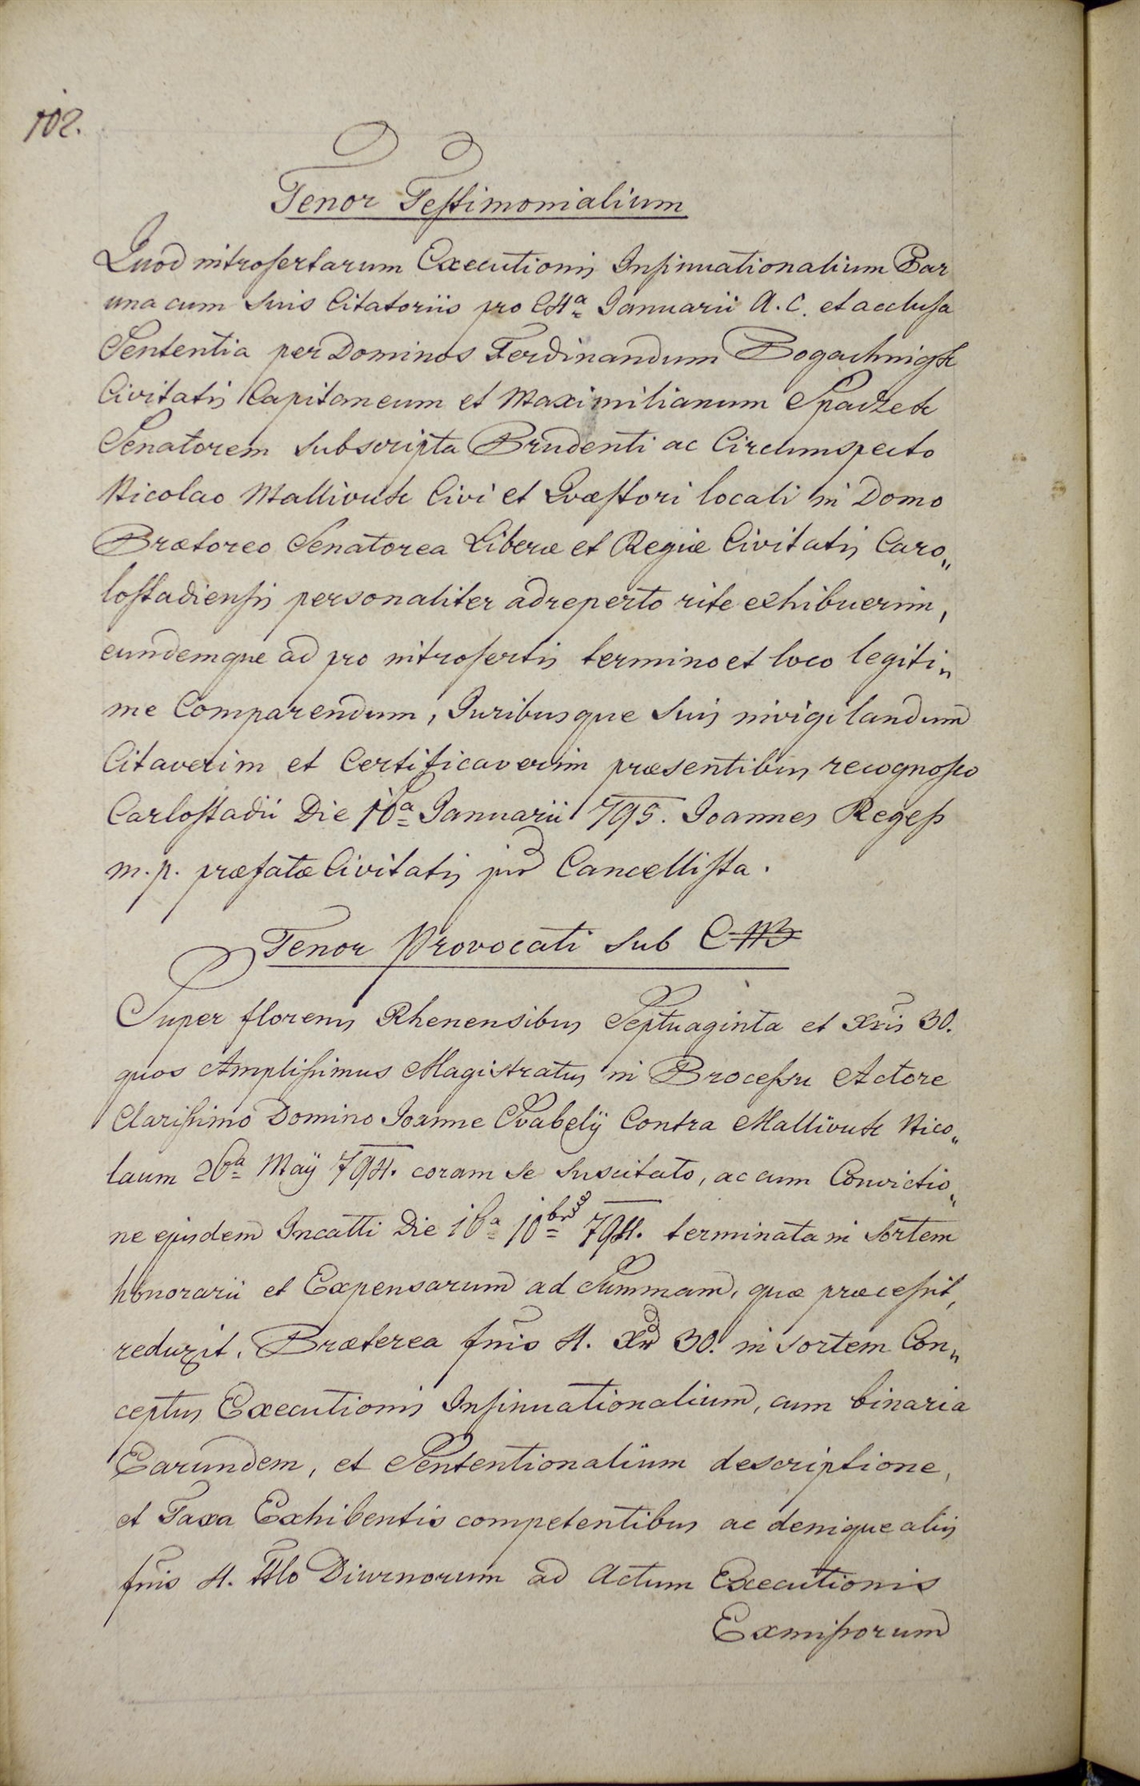 102.
Tenor Testimonialium
Quod introsertarum Executionis Insinuationalium Par
una cum suis Citatoriis pro Januarii A. C. et acclusa
Sententia per Dominos Ferdinandum Bogachnigh
Civitatis Capitaneum et Maximilianum
Senatorem subscripta Prudenti ac Circumspecto
Nicolao Mallivuk Civi et Quæstori locali in Domo
Prætoreo Senatorea Liberæ et Regiæ Civitatis Caro„
lostadiensis personaliter adreperto rite exhibuerim,
eundemque ad pro introsertis termino et loco legiti„
me Comparendum, Juribusque suis invigilandum
Citaverim et Certificaverim præsentibus recognosco
Carlostadii Die 10a Januarii 795. Joannes Regess
m. p. præfatæ Civitatis jur Cancellista.
Tenor Provocati sub
Super florenis Rhenensibus Septuaginta et xris 30.
quos Amplissimus Magistratus in Processu Actore
Clarissimo Domino Joanne Contra Mallivuk Nico„
laum 26a Maÿ 794. coram se suscitato, ac cum Convictio„
ne ejusdem Incatti Die 16a 10bris 794. terminata in Sortem
honorarii et Expensarum ad Summam, quæ præcessit,
reduxit. Præterea fnis 4. xr 30. in sortem Con„
ceptus Executionis Insinuationalium, cum binaria
Earundem, et Sententionalium descriptione,
et Taxa Exhibentis competentibus ac denique aliis
fnis 4. ttlo Diurnorum ad Actum Executionis
Exmissorum